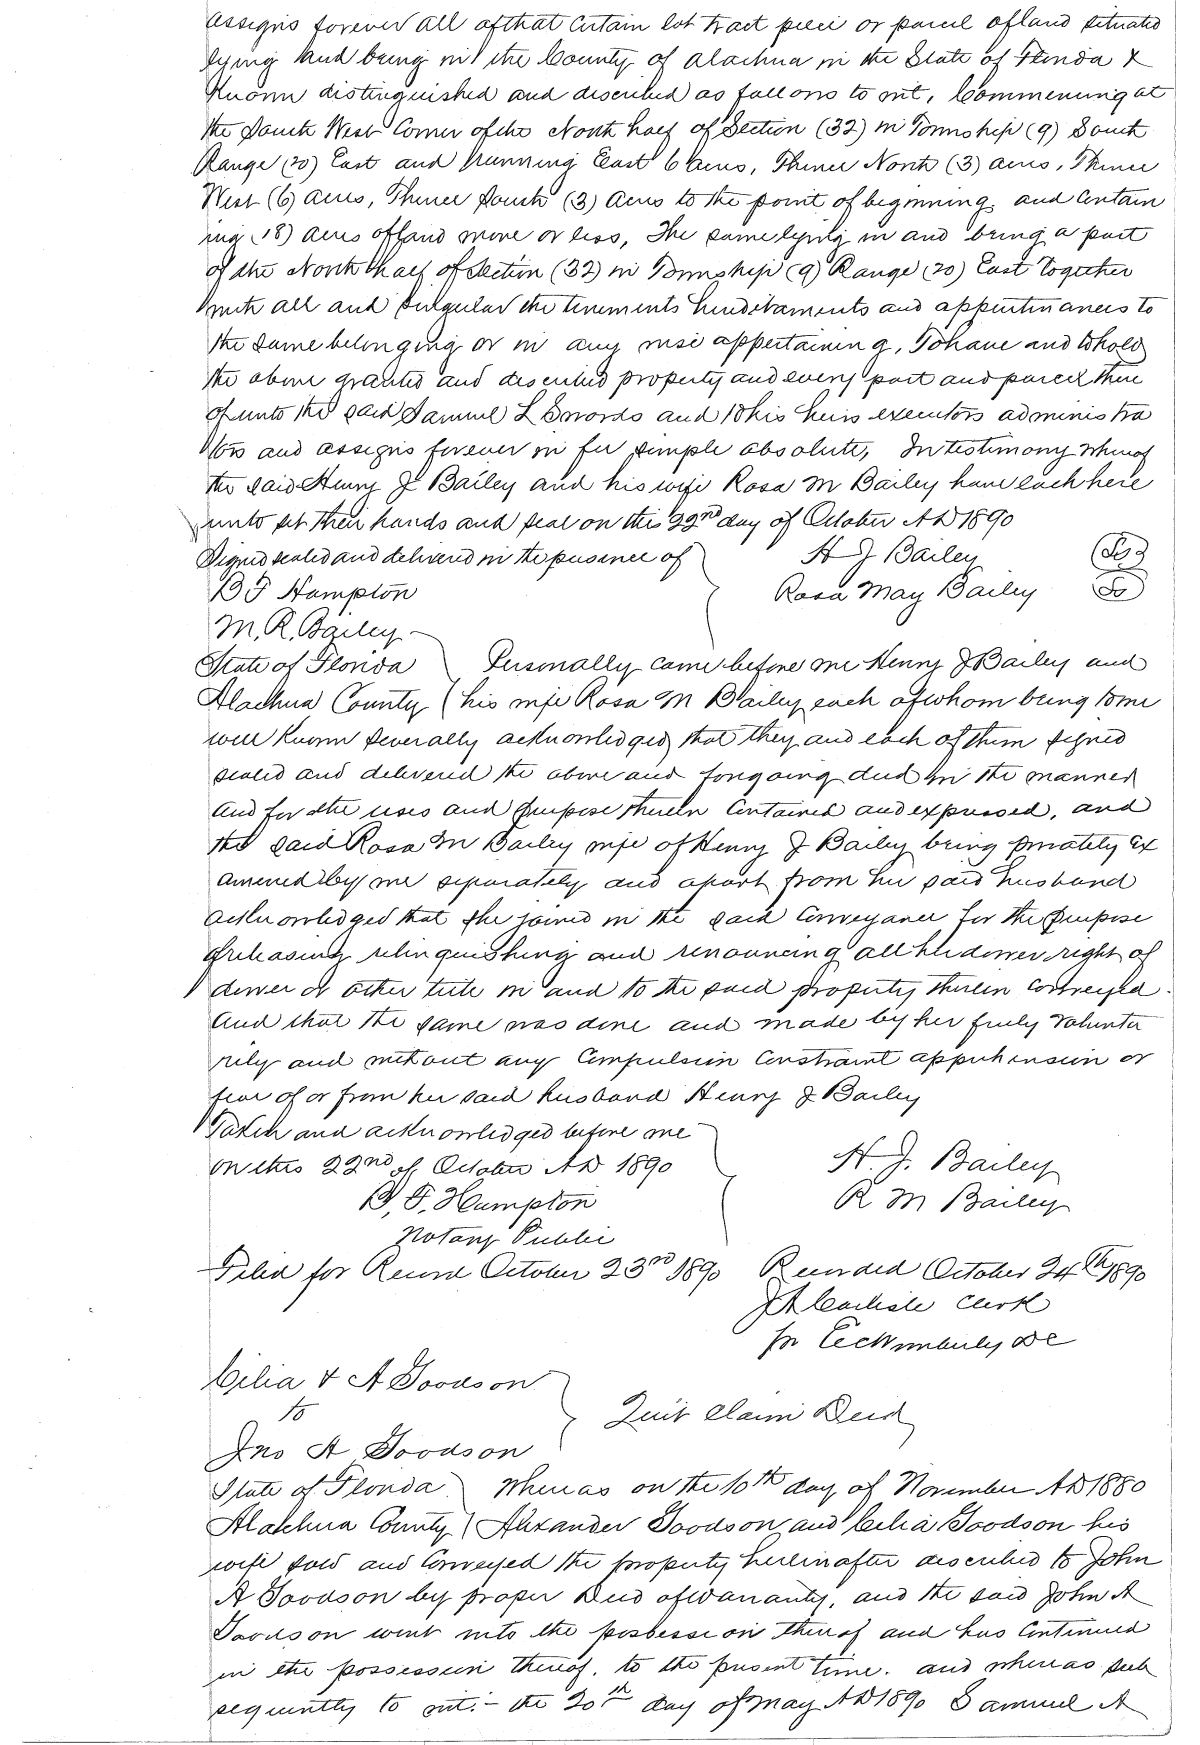 assigns forever all of that certain lot tract piece or parcel of land situated
lying and being in the County of Alachua in the State of Florida &
Known distinguished and described as follows to wit, Commencing at
the South West Corner of the North half of Section (32) in Township (9) South
Range (20) East and running East 6 acres, Thence North (3) acres, Thence
West (6) acres, Thence South (3) Acres to the point of beginning and Contain
ing (18) acres of land more or less, The same lying in and being a part
of the North half of Section (32) in Township (9) Range (20) East Together
with all and singular the tenements hereditaments and appertinances to
the same belonging or in any wise appertaining, To have and to hold
the above granted and described property and every part and parcel there
of unto the said Samuel L Swords and to his heirs executors administra
tors and assigns forever in fee simple absolute, In testimony whereof
the said Henry J Bailey and his wife Rosa M Bailey have each here
unto set their hands and seal on this 22nd day of October AD 1890
Signed sealed and delivered in the presence of H J Bailey (LS)
B F Hampton Rosa May Bailey
M. R. Bailey
State of Florida Personally came before me Henry J Bailey and
Alachua County his wife Rosa M Bailey each of whom being to me
well known severally acknowledged that they and each of them signed
sealed and delivered the above and foregoing deed in the manner
and for the uses and purpose therein Contained and expressed, and
the said Rosa M Bailey wife of Henry J Bailey being privately Ex
amened by me seperately and apart from her said husband
acknowledged that she joined in the said Conveyance for the purpose
of releasing relinquishing and renouncing all her dower right of
dower or other title in and to the said property therein conveyed.
And that the same was done and made by her freely volunta
rily and without any Compulsion Constraint apprehension or
fear of or from her said husband Henry J Bailey
Taken and acknowledged before me
on this 22nd of October AD 1890 H. J. Bailey
B. F. Hampton R M Bailey
Notary Public
Filed for Record October 23rd 1890 Recorded October 24th 1890
J A Carlisle Clerk
DC
Cilia & A Goodson
to Quit Claim Deed
Jno A Goodson
State of Florida Whereas on the 10th day of November AD 1880
Alachua County Alexander Goodson and Celia Goodson his
wife sold and Conveyed the property hereinafter described to John
A Goodson by proper Deed of Warranty, and the said John A
Goodson went into the possession thereof and has Continued
in the possession thereof. to the present time. and whereas sub
sequently to wit:- the 20th day of May AD 1890 Samuel A